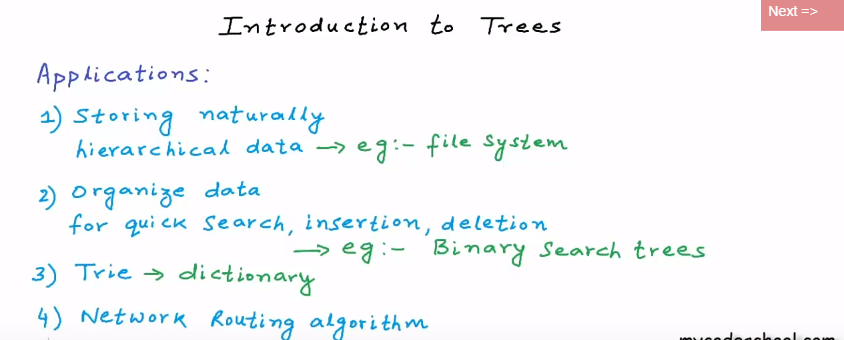 Next =>
Introduction to Trees
Applications:
1) Storing naturally
hierarchical data → eg:- file system
2) Organize data
for quick search, insertion, deletion
→ eg:- Binary Search trees
3) Trie → dictionary
4) Network Routing algorithm